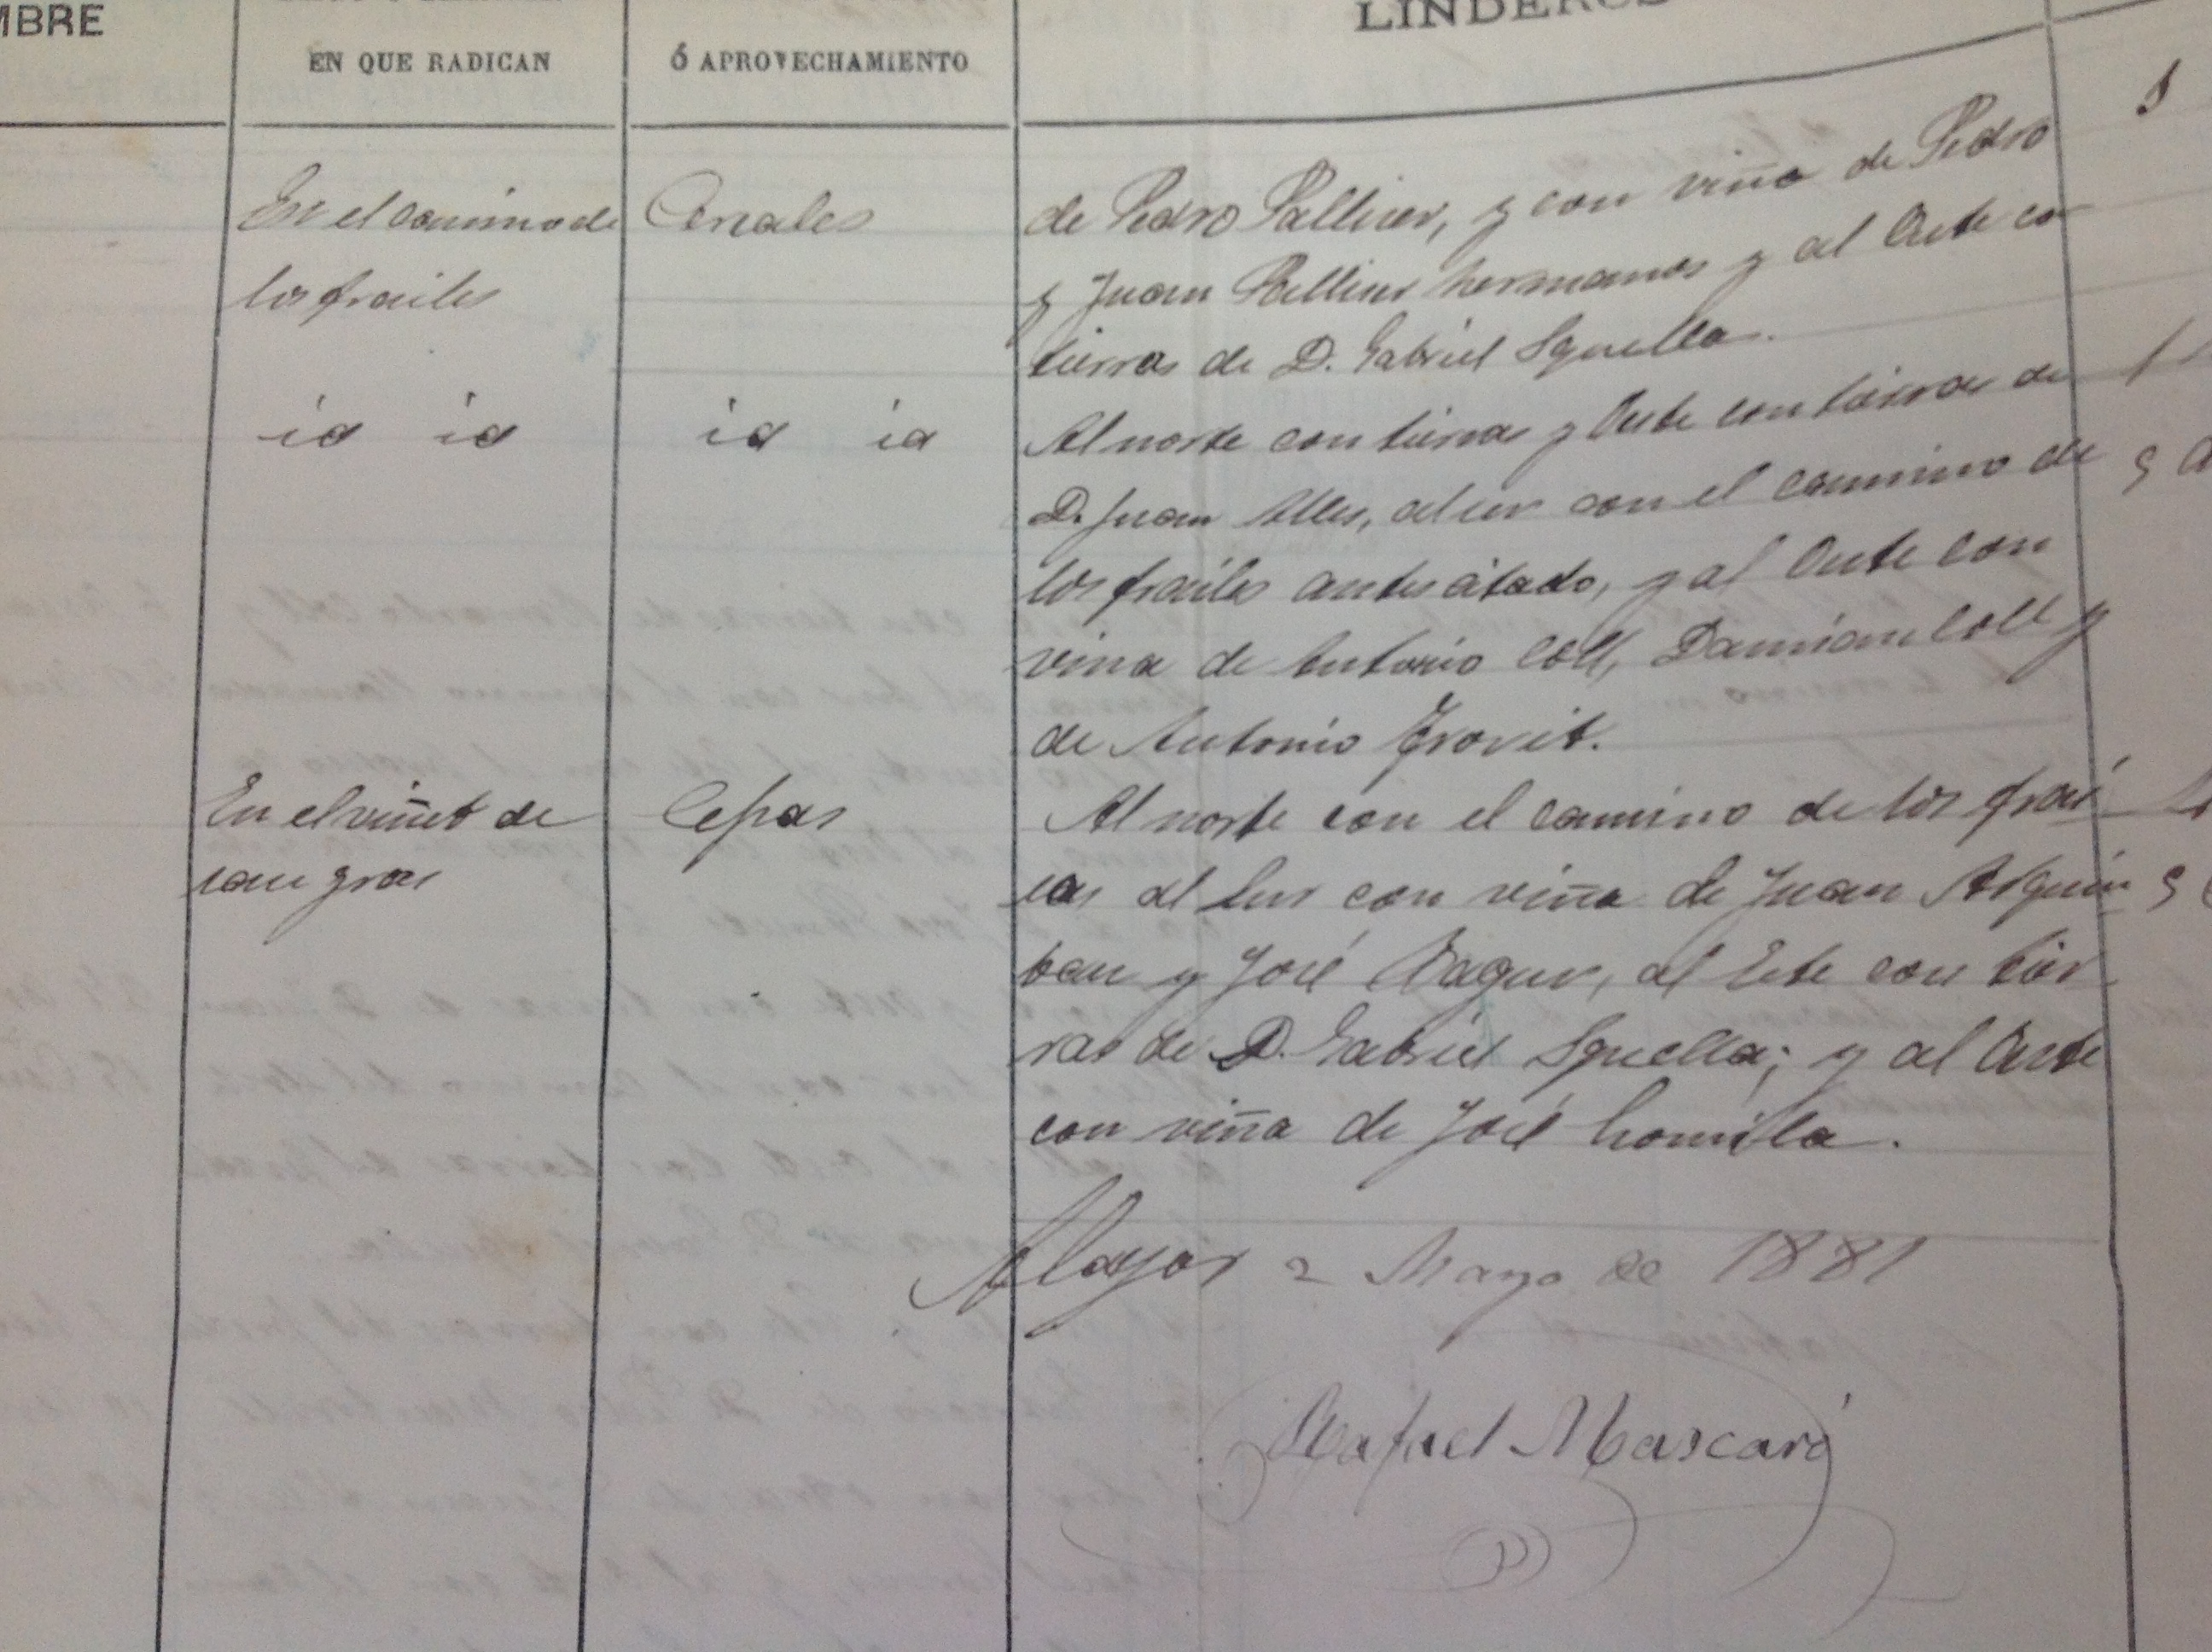 MBRE
EN QUE RADICAN
Ó APROVECHAMIENTO
LINDEROS
En el camino de
los frailes
Cereales
de Pedro Pallicer, y con viña de Pedro
y Juan Pallicer hermanos y al Oeste co
tierras de D. Gabriel Squella.
id id
id id
Al norte con tierras y Oeste con tierras de
D. Juan Alles, al sur con el camino de
los frailes antes citado, y al Oeste con
vina de Antonio Coll, Damian Coll y
de Antonio
En el viñet de
Cepas
Al norte con el camino de los frai
les al Sur con viña de Juan Alquim
bau y José Bagur, al Este con tier
ras de D. Gabriel Squella; y al Oeste
con viña de José
Alayor 2 Mayo de 1881
Rafael Mascaró